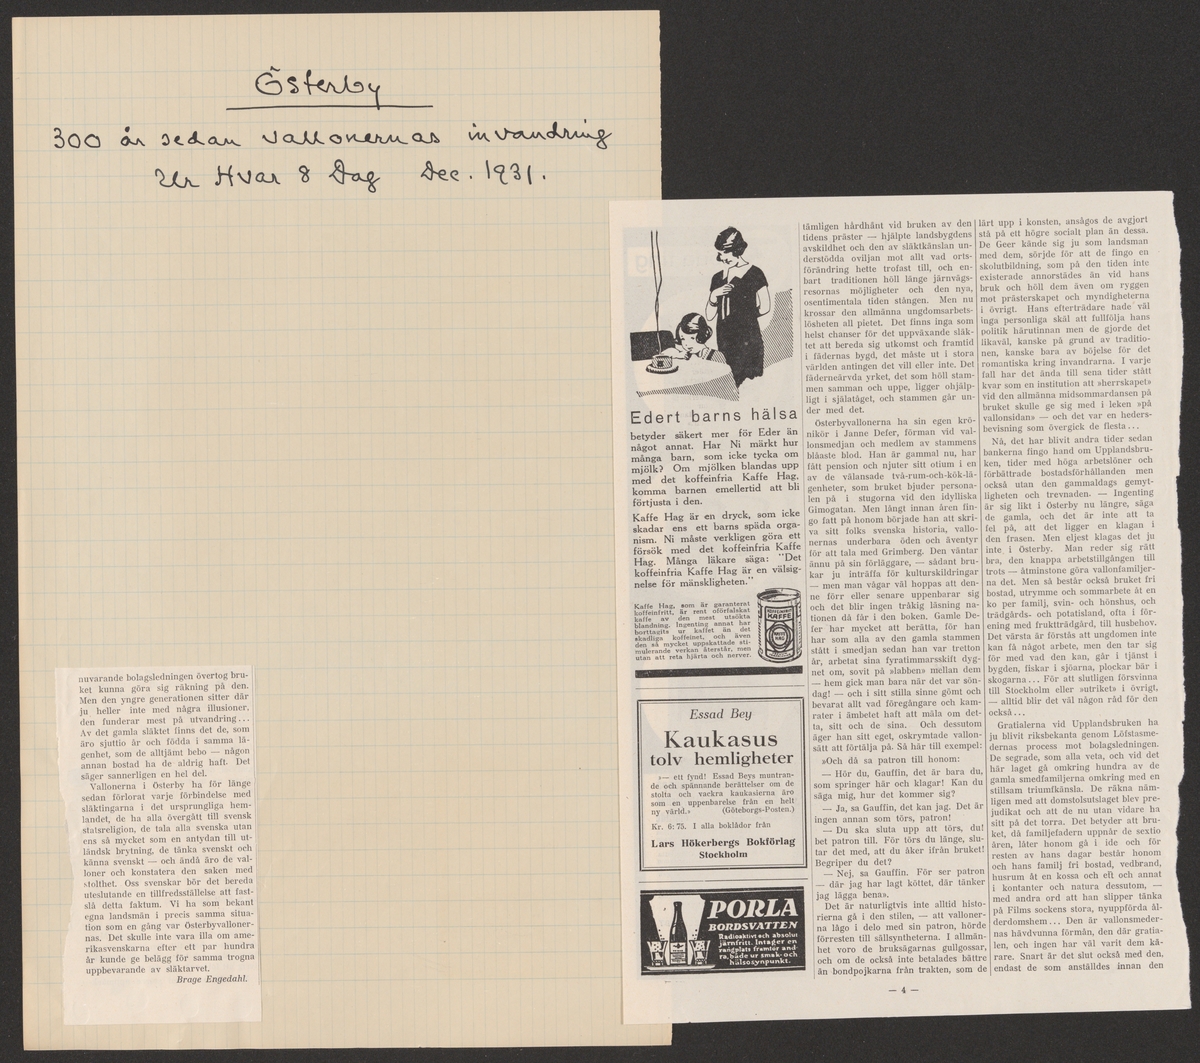 Österby
300 år sedan vallonernas invandring
Ur Hvar 8 Dag Dec. 1931.
Edert barns hälsa
betyder säkert mer för Eder än
något annat. Har Ni märkt hur
många barn, som icke tycka om
mjölk? Om mjölken blandas upp
med det koffeinfria Kaffe Hag,
komma barnen emellertid att bli
förtjusta i den.
Kaffe Hag är en dryck, som icke
skadar ens ett barns späda orga-
nism. Ni måste verkligen göra ett
försök med det koffeinfria Kaffe
Hag. Många läkare säga: "Det
koffeinfria Kaffe Hag är en välsig-
nelse för mänskligheten."
Kaffe Hag, som är garanterat
koffeinfritt, är rent oförfalskat
kaffe av den mest utsökta
blandning. Ingenting annat har
borttagits ur kaffet än det
skadliga koffeinet, och även
den så mycket uppskattade sti-
mulerande verkan återstår, men
utan att reta hjärta och nerver.
KAFFE
HAG
Essad Bey
Kaukasus
tolv hemligheter
»— ett fynd! Essad Beys muntran-
de och spännande berättelser om de
stolta och vackra kaukasierna äro
som en uppenbarelse från en helt
ny värld.» (Göteborgs-Posten.)
Kr. 6:75. I alla boklådor från
Lars Hökerbergs Bokförlag
Stockholm
PORLA
BORDSVATTEN
Radioaktivt och absolut
järnfritt. Intager en
rangplats framför and-
ra, både ur smak- och
hälsosynpunkt.
tämligen hårdhänt vid bruken av den
tidens präster — hjälpte landsbygdens
avskildhet och den av släktkänslan un-
derstödda oviljan mot allt vad orts-
förändring hette trofast till, och en-
bart traditionen höll länge järnvägs-
resornas möjligheter och den nya,
osentimentala tiden stången. Men nu
krossar den allmänna ungdomsarbets-
lösheten all pietet. Det finns inga som
helst chanser för det uppväxande släk-
tet att bereda sig utkomst och framtid
i fädernas bygd, det måste ut i stora
världen antingen det vill eller inte. Det
fäderneärvda yrket, det som höll stam-
men samman och uppe, ligger ohjälp-
ligt i själatåget, och stammen går un-
der med det.
Österbyvallonerna ha sin egen krö-
nikör i Janne Defer, förman vid val-
lonsmedjan och medlem av stammens
blåaste blod. Han är gammal nu, har
fått pension och njuter sitt otium i en
av de välansade två-rum-och-kök-lä-
genheter, som bruket bjuder persona-
len på i stugorna vid den idylliska
Gimogatan. Men långt innan åren fin-
go fatt på honom började han att skri-
va sitt folks svenska historia, vallo-
nernas underbara öden och äventyr
för att tala med Grimberg. Den väntar
ännu på sin förläggare, — sådant bru-
kar ju inträffa för kulturskildringar
— men man vågar väl hoppas att den-
ne förr eller senare uppenbarar sig
och det blir ingen tråkig läsning na-
tionen då får i den boken. Gamle De-
fer har mycket att berätta, för han
har som alla av den gamla stammen
stått i smedjan sedan han var tretton
år, arbetat sina fyratimmarsskift dyg-
net om, sovit på »labben» mellan dem
— hem gick man bara när det var sön-
dag! — och i sitt stilla sinne gömt och
bevarat allt vad föregångare och kam-
rater i ämbetet haft att måla om det-
ta, sitt och de sina. Och dessutom
äger han sitt eget, oskrymtade vallon-
sätt att förtälja på. Så här till exempel:
»Och då sa patron till honom:
— Hör du, Gauffin, det är bara du,
som springer här och klagar! Kan du
säga mig, hur det kommer sig?
— Ja, sa Gauffin, det kan jag. Det är
ingen annan som törs, patron!
— Du ska sluta upp att törs, du!
bet patron till. För törs du länge, slu-
tar det med, att du åker ifrån bruket!
Begriper du det?
— Nej, sa Gauffin. För ser patron
— där jag har lagt köttet, där tänker
jag lägga bena».
Det är naturligtvis inte alltid histo-
rierna gå i den stilen, — att valloner-
na lågo i delo med sin patron, hörde
förresten till sällsyntheterna. I allmän-
het voro de bruksägarnas gullgossar,
och om de också inte betalades bättre
än bondpojkarna från trakten, som de
lärt upp i konsten, ansågos de avgjort
stå på ett högre socialt plan än dessa.
De Geer kände sig ju som landsman
med dem, sörjde för att de fingo en
skolutbildning, som på den tiden inte
existerade annorstädes än vid hans
bruk och höll dem även om ryggen
mot prästerskapet och myndigheterna
i övrigt. Hans efterträdare hade väl
inga personliga skäl att fullfölja hans
politik härutinnan men de gjorde det
likaväl, kanske på grund av traditio-
nen, kanske bara av böjelse för det
romantiska kring invandrarna. I varje
fall har det ända till sena tider stått
kvar som en institution att »herrskapet»
vid den allmänna midsommardansen på
bruket skulle ge sig med i leken »på
vallonsidan» — och det var en heders-
bevisning som övergick de flesta...
Nå, det har blivit andra tider sedan
bankerna fingo hand om Upplandsbru-
ken, tider med höga arbetslöner och
förbättrade bostadsförhållanden men
också utan den gammaldags gemyt-
ligheten och trevnaden. — Ingenting
är sig likt i Österby nu längre, säga
de gamla, och det är inte att ta
fel på, att det ligger en klagan i
den frasen. Men eljest klagas det ju
inte i Österby. Man reder sig rätt
bra, den knappa arbetstillgången till
trots — åtminstone göra vallonfamiljer-
na det. Men så består också bruket fri
bostad, utrymme och sommarbete åt en
ko per familj, svin- och hönshus, och
trädgårds- och potatisland, ofta i för-
ening med fruktträdgård, till husbehov.
Det värsta är förstås att ungdomen inte
kan få något arbete, men den tar sig
för med vad den kan, går i tjänst i
bygden, fiskar i sjöarna, plockar bär i
skogarna... För att slutligen försvinna
till Stockholm eller »utrikes» i övrigt,
— alltid blir det väl någon råd för den
också...
Gratialerna vid Upplandsbruken ha
ju blivit riksbekanta genom Löfstasme-
dernas process mot bolagsledningen.
De segrade, som alla veta, och vid det
här laget gå omkring hundra av de
gamla smedfamiljerna omkring med en
stillsam triumfkänsla. De räkna näm-
ligen med att domstolsutslaget blev pre-
judikat och att de nu utan vidare ha
sitt på det torra. Det betyder att bru-
ket, då familjefadern uppnår de sextio
åren, låter honom gå i ide och för
resten av hans dagar består honom
och hans familj fri bostad, vedbrand,
husrum åt en kossa och ett och annat
i kontanter och natura dessutom, —
med andra ord att han slipper tänka
på Films sockens stora, nyuppförda ål-
derdomshem... Den är vallonsmeder-
nas hävdvunna förmån, den där gratia-
len, och ingen har väl varit dem kä-
rare. Snart är det slut också med den,
endast de som anställdes innan den
— 4 —
nuvarande bolagsledningen övertog bru-
ket kunna göra sig räkning på den.
Men den yngre generationen sitter där
ju heller inte med några illusioner,
den funderar mest på utvandring...
Av det gamla släktet finns det de, som
äro sjuttio år och födda i samma lä-
genhet, som de alltjämt bebo — någon
annan bostad ha de aldrig haft. Det
säger sannerligen en hel del.
Vallonerna i Österby ha för länge
sedan förlorat varje förbindelse med
släktingarna i det ursprungliga hem-
landet, de ha alla övergått till svensk
statsreligion, de tala alla svenska utan
ens så mycket som en antydan till ut-
ländsk brytning, de tänka svenskt och
känna svenskt — och ändå äro de val-
loner och konstatera den saken med
stolthet. Oss svenskar bör det bereda
uteslutande en tillfredsställelse att fast-
slå detta faktum. Vi ha som bekant
egna landsmän i precis samma situa-
tion som en gång var Österbyvalloner-
nas. Det skulle inte vara illa om ame-
rikasvenskarna efter ett par hundra
år kunde ge belägg för samma trogna
uppbevarande av släktarvet.
Brage Engedahl.